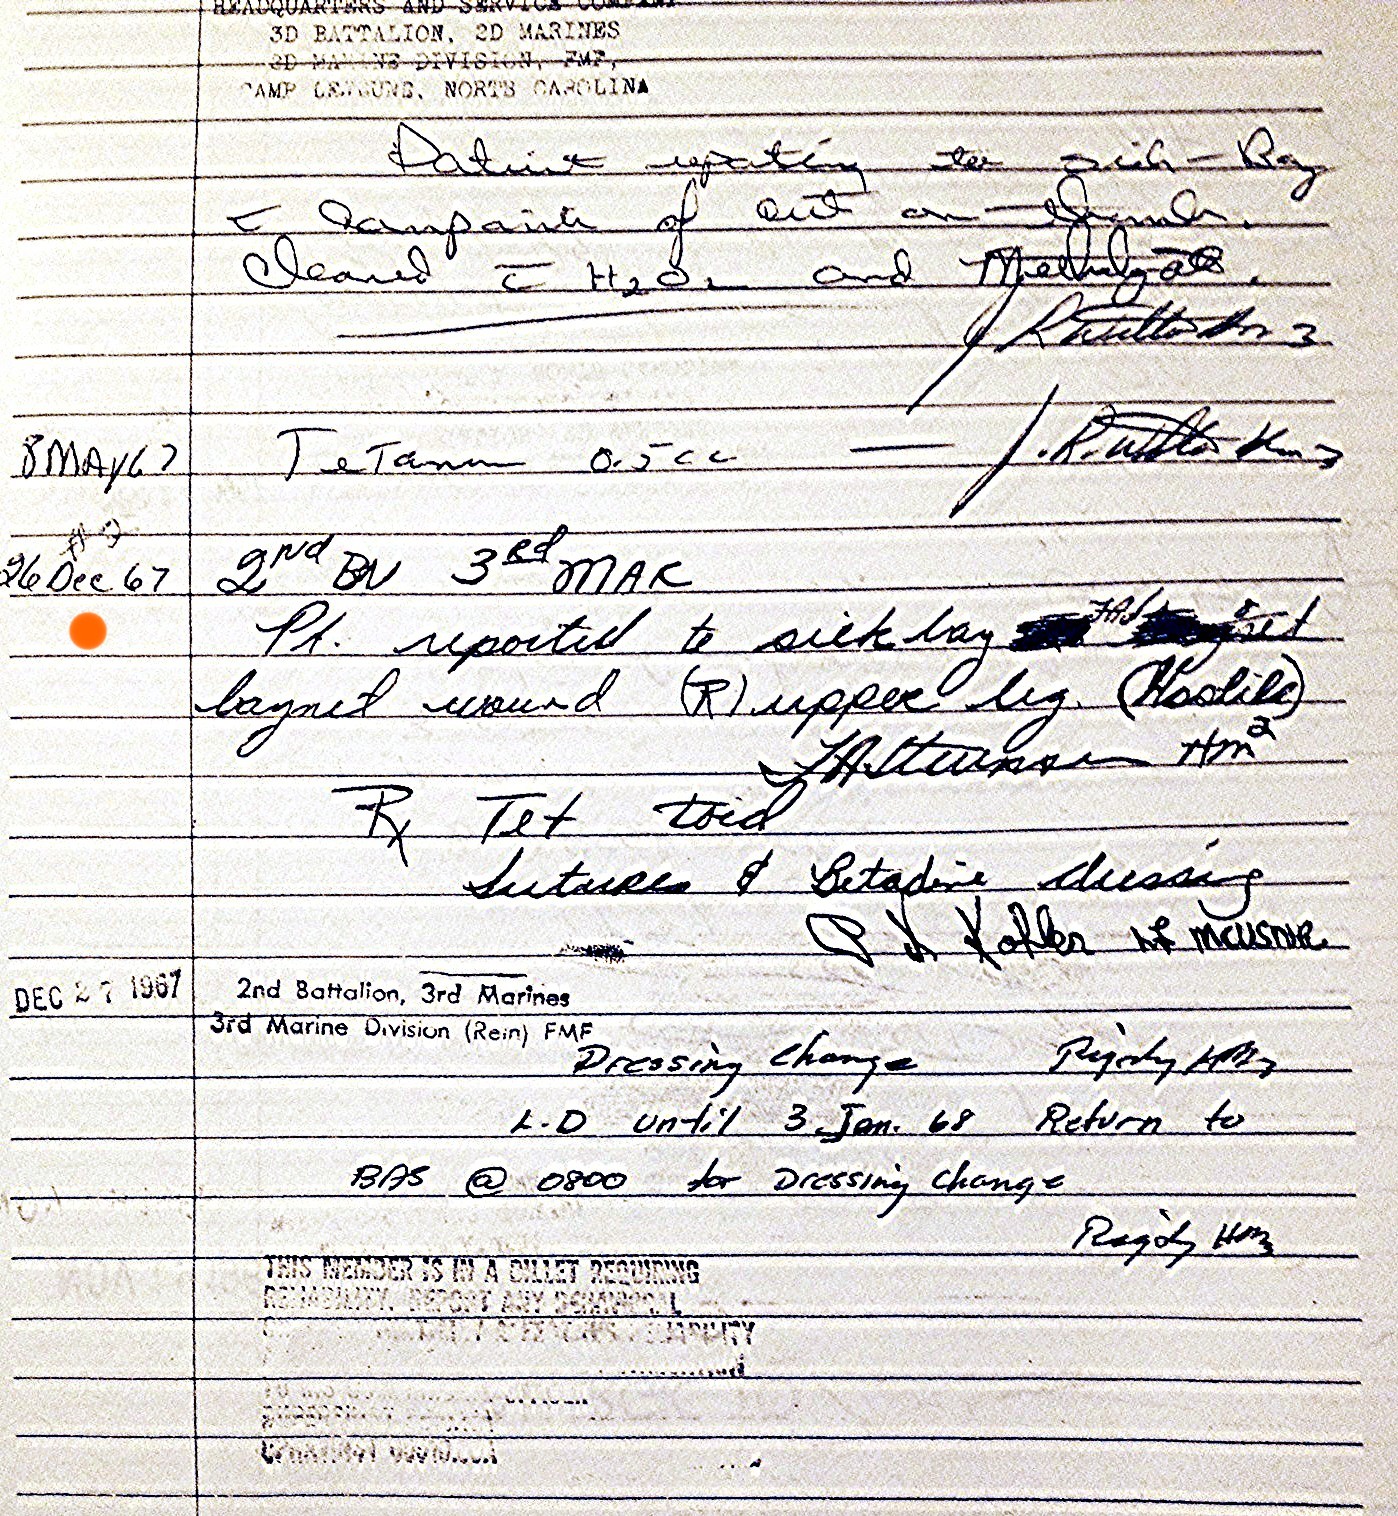 HEADQUARTERS AND SERVICE COMPANY
3D BATTALION, 2D MARINES
2D MARINE DIVISION, FMF,
CAMP LEJEUNE, NORTH CAROLINA
Patient reporting to sick-Bay
c̄ complaint of cut on thumb.
Cleaned c̄ H2O2 and
8 MAY 67 Tetanus 0.5cc
#2
26 Dec 67 2nd BN 3rd MAR
Pt. reported to sick bay
baynet wound (R) upper leg. (Hostile)
HM2
Rx Tet toxid
Sutures & Betadine dressing
Kofler LT MCUSNR
DEC 27 1967 2nd Battalion, 3rd Marines
3rd Marine Division (Rein) FMF
Dressing Change HM3
L.D until 3 Jan. 68 Return to
BAS @ 0800 for Dressing change
HM3
THIS MEMBER IS IN A BILLET REQUIRING
RELIABILITY. REPORT ANY BEHAVIORAL
RELIABILITY